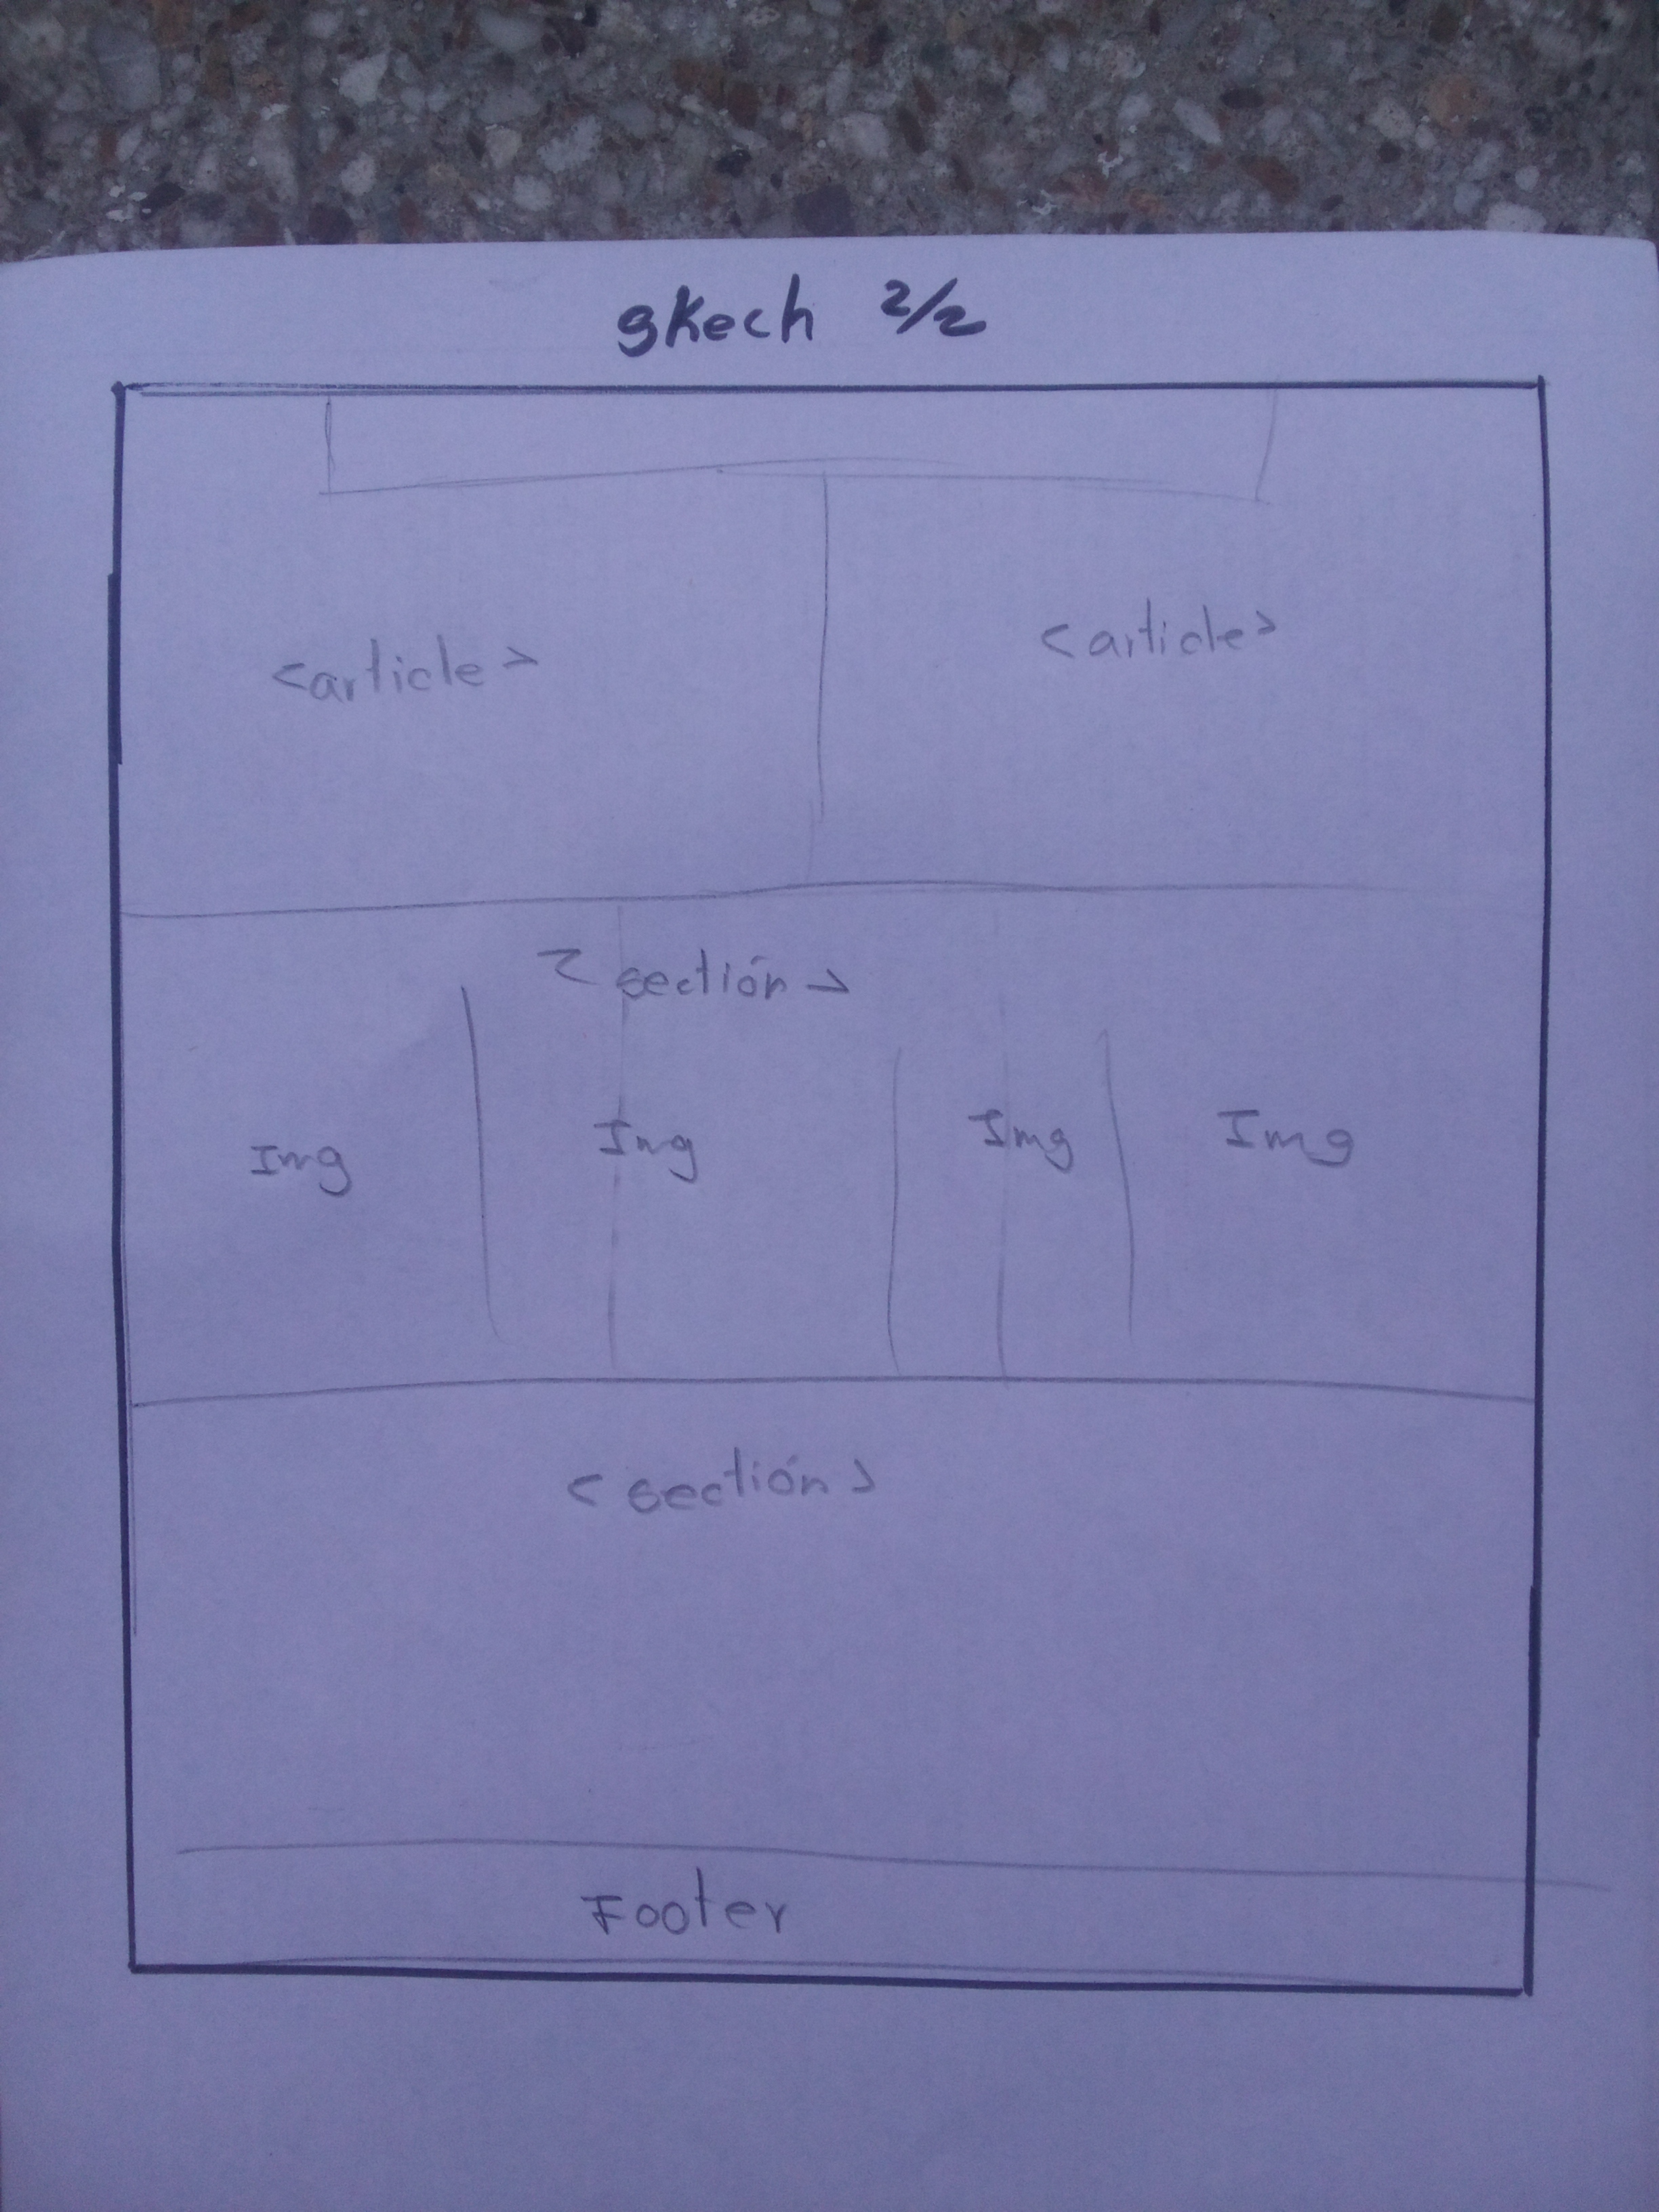 skech 2/2
<article> <article>
<sectión>
Img Img Img Img
<sectión>
Footer